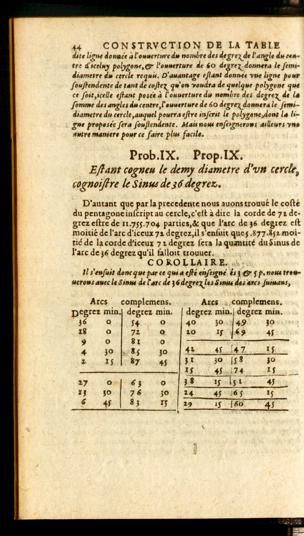 44 CONSTRVCTION DE LA TABLE
dite ligne donnée à l'ouuerture du nombre des degrez de l'angle du cen-
tre d'iceluy polygone, & l'ouuerture de 60 degrez donnera le semi-
diametre du cercle requis. D'auantage estant donnée vne ligne pour
soustendente de tant de costez qu'on voudra de quelque polygone que
ce soit, icelle estant posée à l'ouuerture du nombre des degrez de la
somme des angles du centre, l'ouuerture de 60 degrez donnera le semi-
diametre du cercle, auquel pourra estre inscrit le polygone, dont la li-
gne proposée sera soustendente. Mais nous enseignerons ailleurs vne
autre maniere pour ce faire plus facile.
Prob. IX. Prop. IX.
Estant cogneu le demy diametre d'vn cercle,
cognoistre le Sinus de 36 degrez.
D'autant que par la precedente nous auons trouué le costé
du pentagone inscript au cercle, c'est à dire la corde de 72 de-
grez estre de 11.755.704 parties, & que l'arc de 36 degrez est
moitié de l'arc d'iceux 72 degrez, il s'ensuit que 5.877.852 moi-
tié de la corde d'iceux 72 degrez sera la quantité du Sinus de
l'arc de 36 degrez qu'il falloit trouuer.
COROLLAIRE.
Il s'ensuit donc que par ce qui a esté enseigné és 3 & 5 p. nous trou-
uerons auec le Sinus de l'arc de 36 degrez les Sinus des arcs suiuans,
Arcs complemens. Arcs complemens.
Degrez min. degrez min. degrez min. degrez min.
36 0 54 0 40 30 49 30
18 0 72 0 20 15 69 45
9 0 81 0
4 30 85 30 42 45 47 15
2 15 87 45 31 30 58 30
15 45 74 15
27 0 63 0 38 15 51 45
13 30 76 30 24 45 65 15
6 45 83 15 29 15 60 45